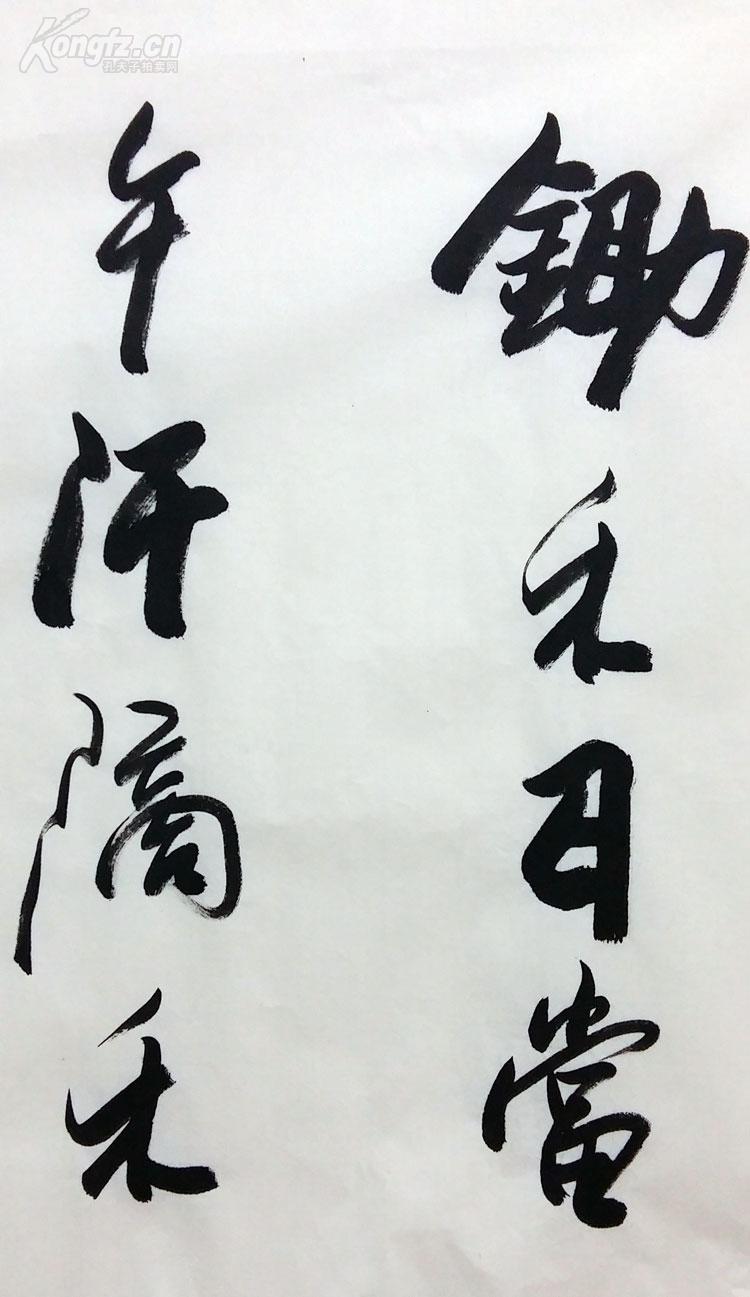 Kongfz.cn
孔夫子拍卖网
鋤禾日當
午汗滴禾